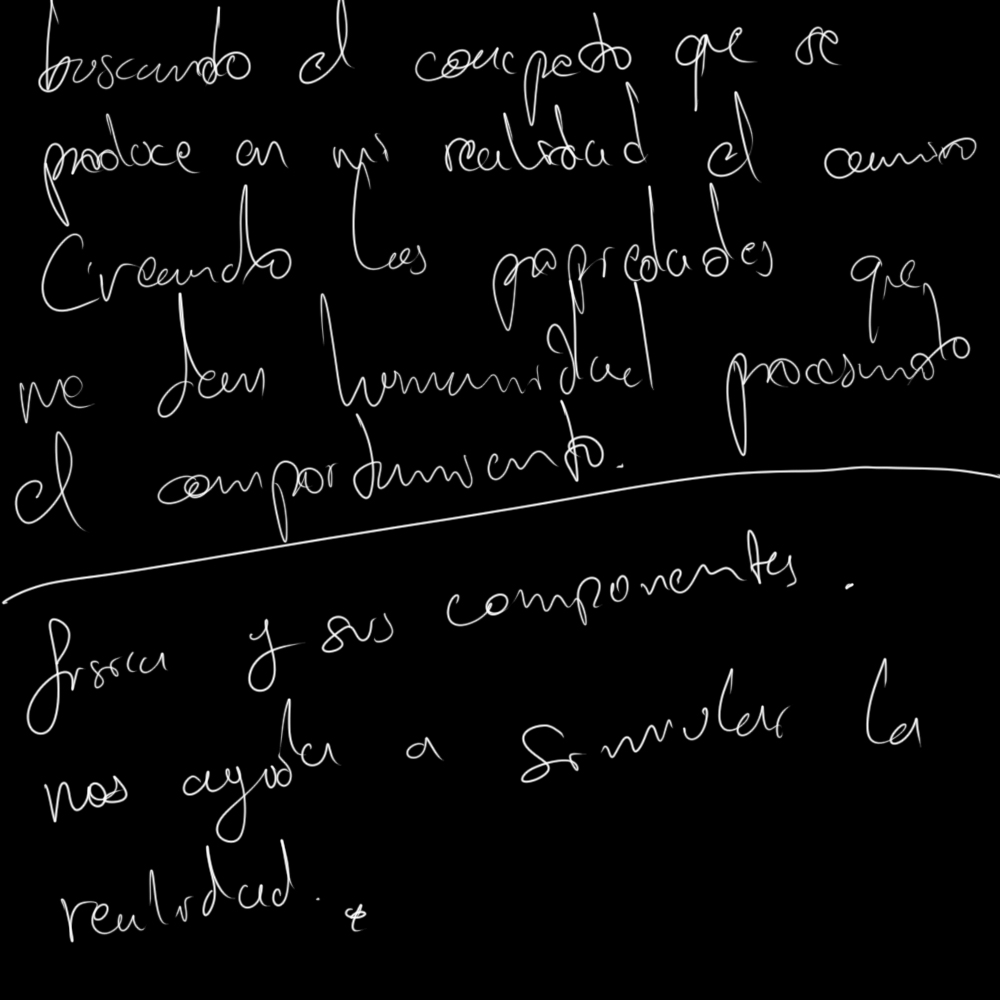 buscando el concepto que se
produce en mi realidad el camino
Creando las propiedades que
me dan humanidad procesando
el comportamiento.
física y sus componentes.
nos ayuda a simular la
realidad.